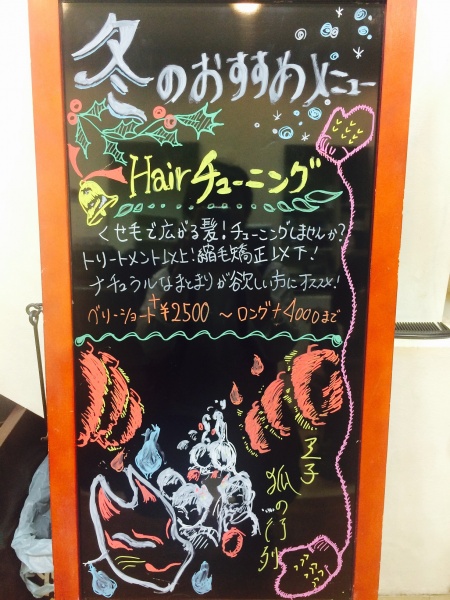 冬のおすすめメニュー
Hairチューニング
くせ毛で広がる髪!チューニングしませんか?
トリートメント以上!縮毛矯正以下!
ナチュラルなまとまりが欲しい方にオススメ!
ベリーショート+¥2500 〜ロング+4000まで
王子
狐の行列